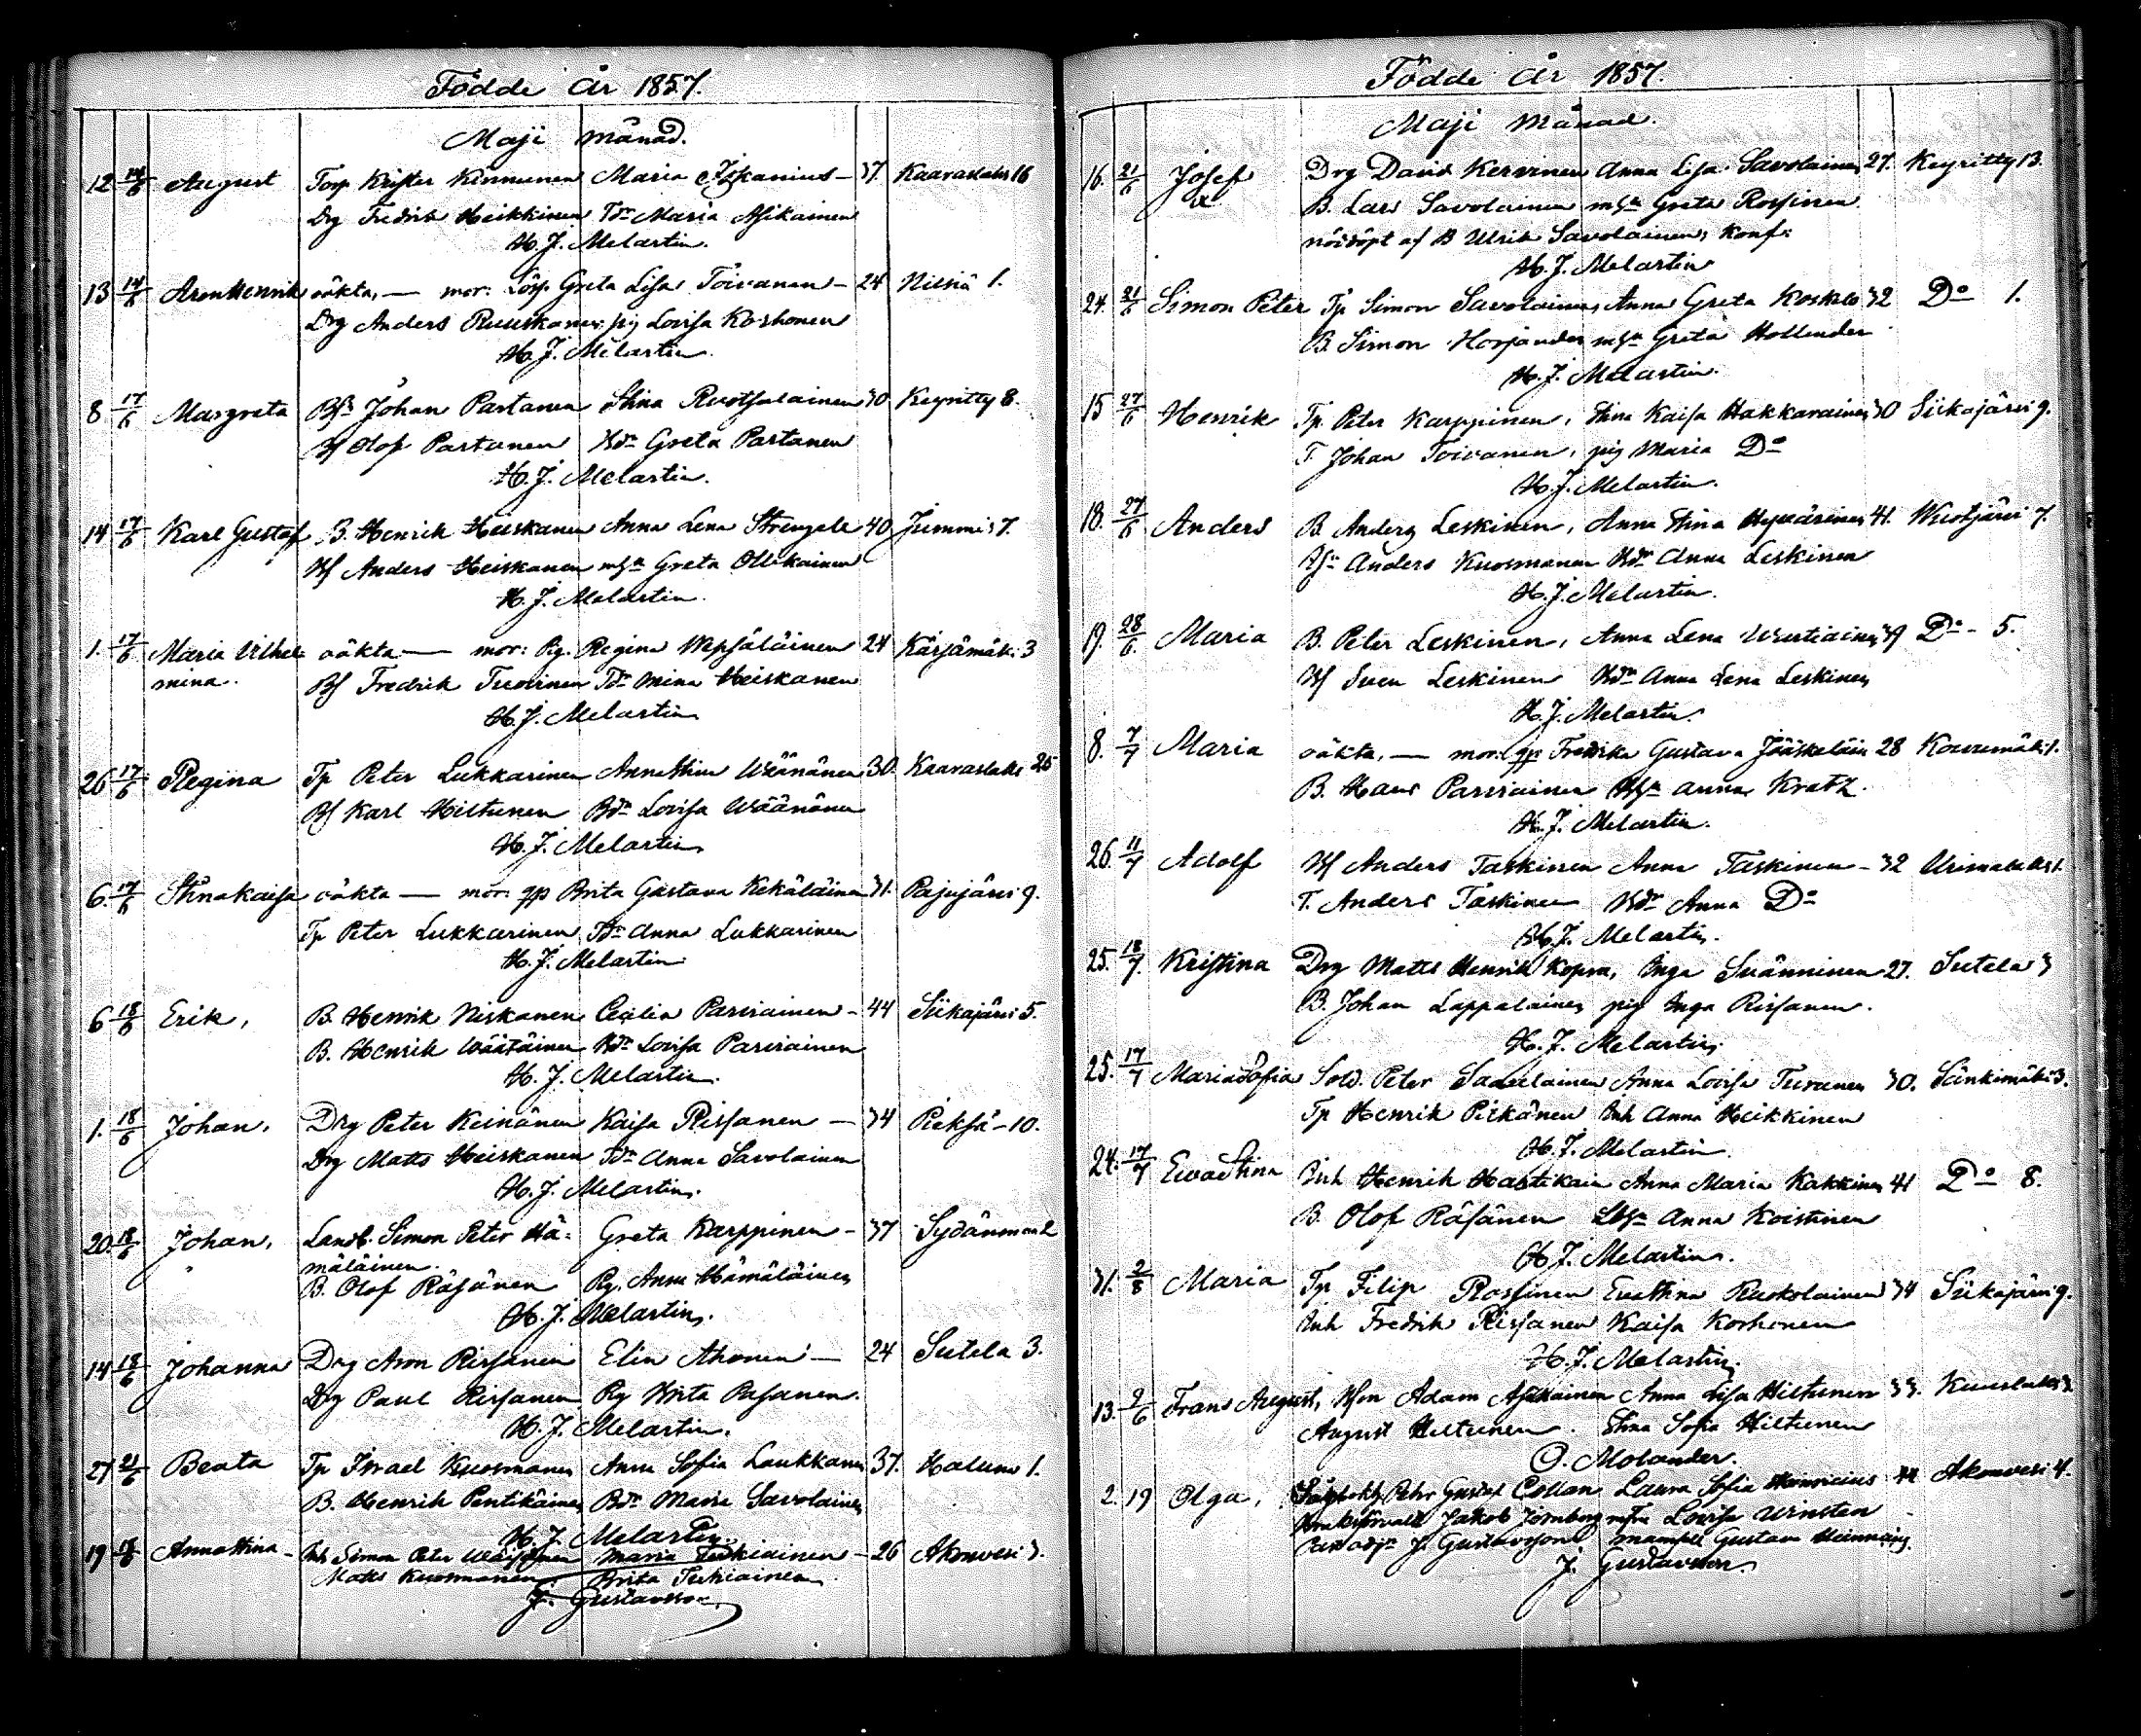 Födde År 1857.
Maji månad.
12 14/6 August Torp Krister Kinnunen Maria Asikanius - 37. Kaavaslaks 16
Drg Fredrik Heikkinen Tdr Maria Asikainen
H. J. Melartin.
13 14/6 Aron Henrik oäkta, — mor: Lösp. Greta Lisa Toivanen - 24 Nilsiä 1.
Drg Anders Ruuskanen pig Lovisa Korhonen
H. J. Melartin.
8 17/6 Margreta Johan Partanen Stina Ruotsalainen 30 Keyritty 8.
Olof Partanen Greta Partanen
H. J. Melartin.
14 17/6 Karl Gustaf B. Henrik Heiskanen Anna Lena Strengele 40 Jummi 7.
Anders Heiskanen Greta Ollikainen
H. J. Melartin.
1. 17/6 Maria Vilhel- oäkta — mor: Pig. Regina Wepsäläinen 24 Kärsämäki 3
mina. Fredrik Tuovinen Tdr Mina Heiskanen
H. J. Melartin
26 17/6 Regina Tp Peter Lukkarinen Anna Stina Wäänänen 30. Kaavaslaks 25
Karl Hiltunen Bdr Lovisa Wäänänen
H. J. Melartin
6. 17/6 Stina Kaisa oäkta — mor: gp Brita Gustava Kekäläinen 31. Pajujärvi 9.
Tp Peter Lukkarinen Tdr Anna Lukkarinen
H. J. Melartin
6 18/6 Erik, B. Henrik Niskanen Cecilia Parviainen - 44 Siikajärvi 5.
B. Henrik Väätäinen Bdr Lovisa Parviainen
H. J. Melartin.
1. 18/6 Johan, Drg Peter Keinänen Kaisa Rissanen — 34 Pieksä - 10.
Drg Matts Heiskanen Tdr Anna Savolainen
H. J. Melartin.
20. 18/6 Johan, Landb. Simon Peter Hä- Greta Karppinen - 37 Sydänmaa 2
mäläinen.
B. Olof Räsänen Pg. Anna Hämäläinen
H. J. Melartin.
14 18/6 Johanna Drg Aron Rissanen Elin Ahonen — 24 Sutela 3.
Drg Paul Rissanen Pg Brita Rissanen.
H. J. Melartin.
27 21/6 Beata Tp Israel Kuosmanen Anna Sofia Laukkanen 37. Haluna 1.
B. Henrik Pentikäinen Bdr Maria Savolainen
H. J. Melartin.
19 18/6 Anna Stina - Inh Simon Peter Maria Tuhiainen - 26 Akonvesi 3.
Matts Kuosmanen. Brita Tuhiainen
J. Gustavsson.
Födde År 1857.
Maji månad.
16. 21/6 Josef Drg David Kervinen Anna Lisa Savolainen 27. Keyritty 13.
B. Lars Savolainen Greta Rossinen
nöddöpt af B Ulrik Savolainen, konf:
H. J. Melartin
24. 21/6 Simon Peter Tp Simon Savolainen Anna Greta 32 Do 1.
B. Simon Greta Hollender
H. J. Melartin.
15 27/6 Henrik Tp. Peter Karppinen, Stina Kaisa Hakkarainen 30 Siikajärvi 9.
T. Johan Toivanen, pig Maria Do
H. J. Melartin.
18. 27/6 Anders B. Anders Leskinen, Anna Stina Hyvärinen 41. Wuotjärvi 7.
Anders Kuosmanen Anna Leskinen
H. J. Melartin.
19. 28/6 Maria B. Peter Leskinen, Anna Lena 39 Do - 5.
Sven Leskinen Anna Lena Leskinen
H. J. Melartin.
8. 7/7 Maria oäkta, — mor: gp. Fredrika Gustava Jääskeläin 28 Kouvumäki 1.
B. Hans Parviainen Anna Kratz.
H. J. Melartin.
26. 11/7 Adolf Anders Taskinen Anna Taskinen - 32 Urimalaks 1.
T. Anders Taskinen Anna Do
H. J. Melartin.
25. 18/7 Kristina Drg Matts Henrik Kopsa, Inga Svänninen 27. Sutela 3
B. Johan Lappalainen pig Inga Rissanen.
H. J. Melartin.
25. 17/7 Maria Sofia Sold. Peter Saastulainen Anna Lovisa Turunen 30. Sänkimäki 3.
Tp Henrik Pitkänen Inh Anna Heikkinen
H. J. Melartin.
24. 17/7 Eva Stina Inh Henrik Hartikain Anna Maria Kakkinen 41 Do 8.
B. Olof Räsänen Anna Koistinen
H. J. Melartin.
31. 2/8 Maria Tp Filip Rossinen Eva Stina Ruokolainen 34 Siikajärvi 9.
Inh Fredrik Rissanen Kaisa Korhonen
H. J. Melartin.
13. 2/6 Frans August, Adam Asikainen Anna Lisa Hiltunen 33. Kuuslaks 3.
August Hiltunen. Stina Sofia Hiltunen
O. Molander.
2. 19 Olga, Petr Gustaf Collan Laura Sofia 44 Akonvesi 4.
Jakob Jernberg Lovisa Winsten
J. Gustavsson mamsell Gustava
J. Gustavsson.